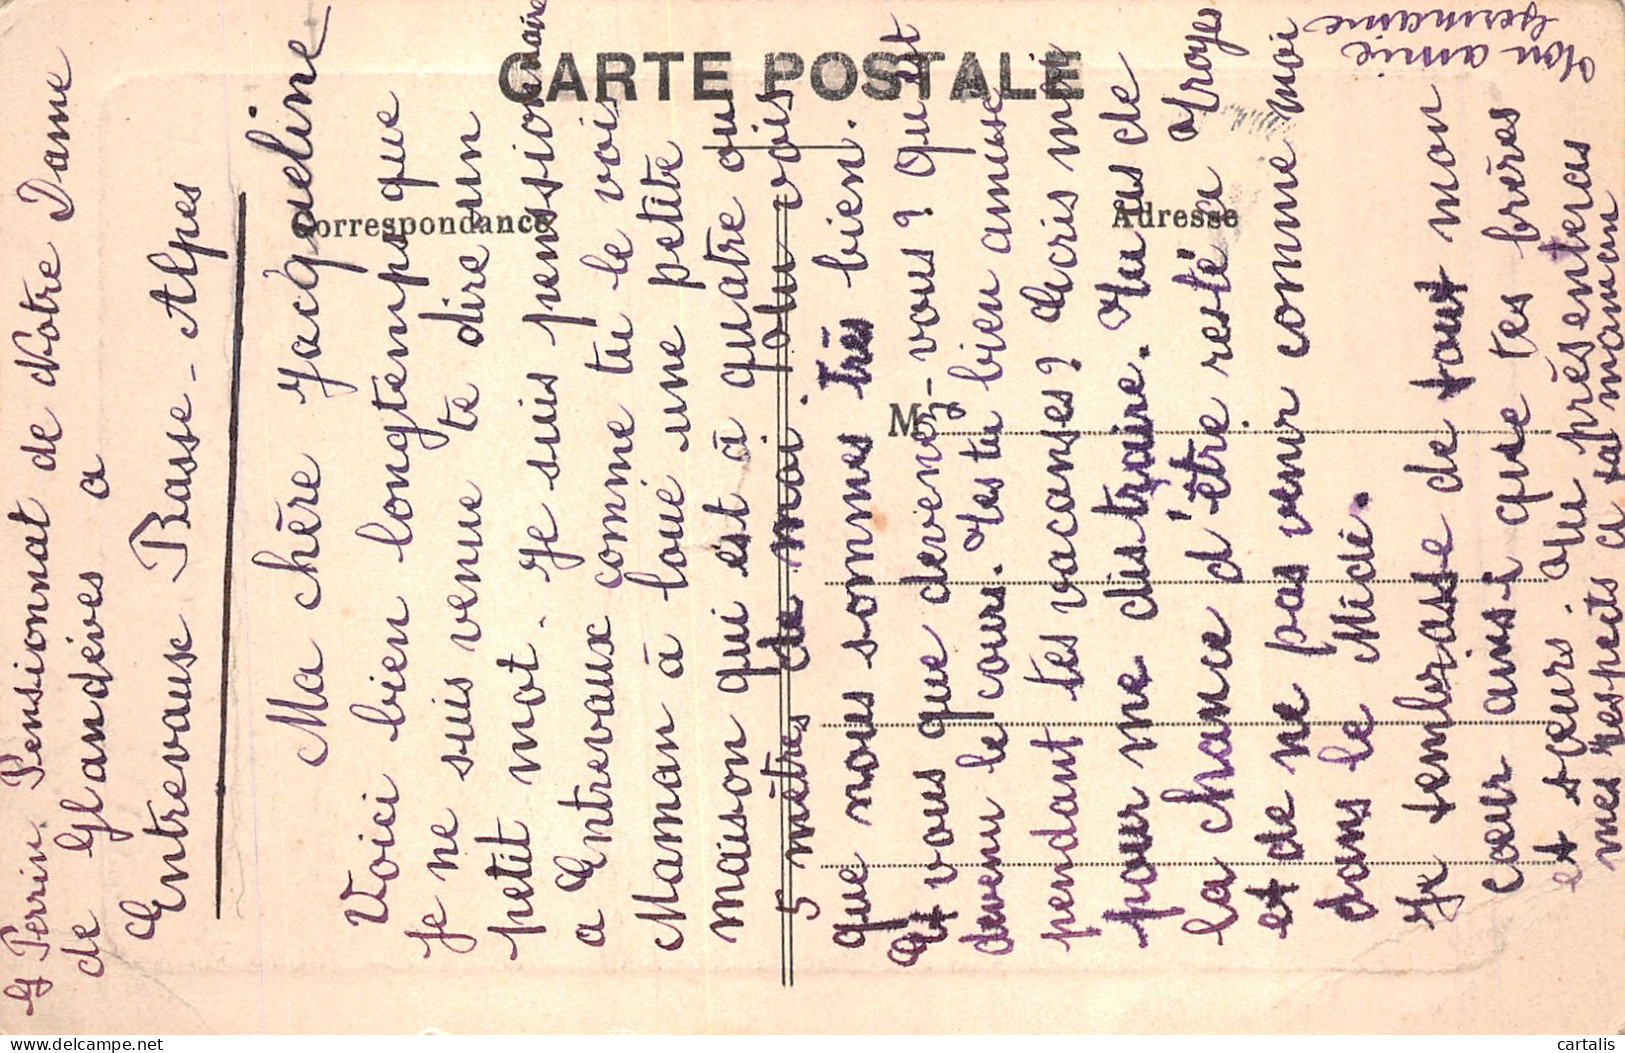 CARTE POSTALE
Correspondance
Adresse
M
G Perrin Pensionnat de Notre Dame
de Glandéves a
Entrevause Basse-Alpes
Ma chère Jacqueline
Voici bien longtemps que
je ne suis venue te dire un
petit mot. Je suis penssionnaire
a Entrevaux comme tu le vois
Maman à loué une petite
maison qui est à quatre ou
5 mètres de moi. tu vois
que nous sommes très bien.
Et vous que devenez-vous? Qu'est
devenu le cours. T'es tu bien amusé
pendant tes vacanses? Ecris moi
pour me distraire. Tu as de
la chance d'être resté a Troyes
et de ne pas venir comme moi
dans le Midi.
Je tembrasse de tout mon
cœur ainsi que tes frères
et sœurs. Tu présenteras
mes respects a ta maman
Ton amie
Germaine
cartalis